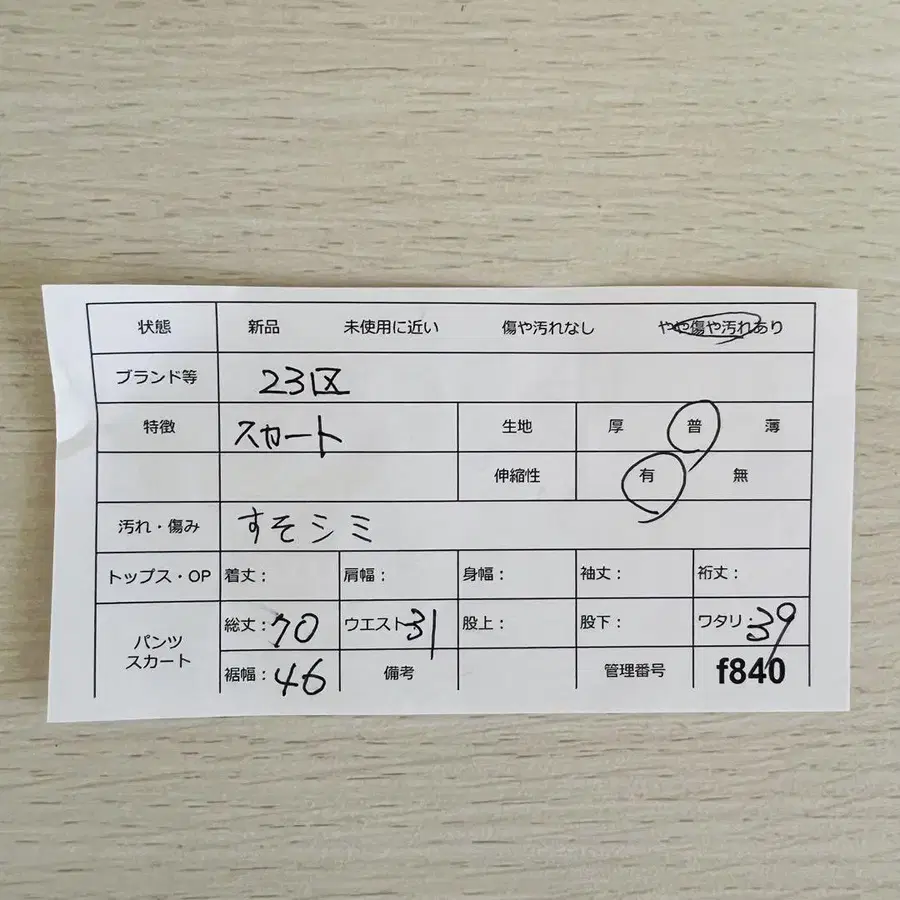 状態 新品 未使用に近い 傷や汚れなし やや傷や汚れあり
ブランド等 23区
特徴 スカート 生地 厚 普 薄
伸縮性 有 無
汚れ・傷み すそシミ
トップス・OP 着丈: 肩幅: 身幅: 袖丈: 裄丈:
パンツ スカート 総丈:70 ウエスト31 股上: 股下: ワタリ:39
裾幅:46 備考 管理番号 f840